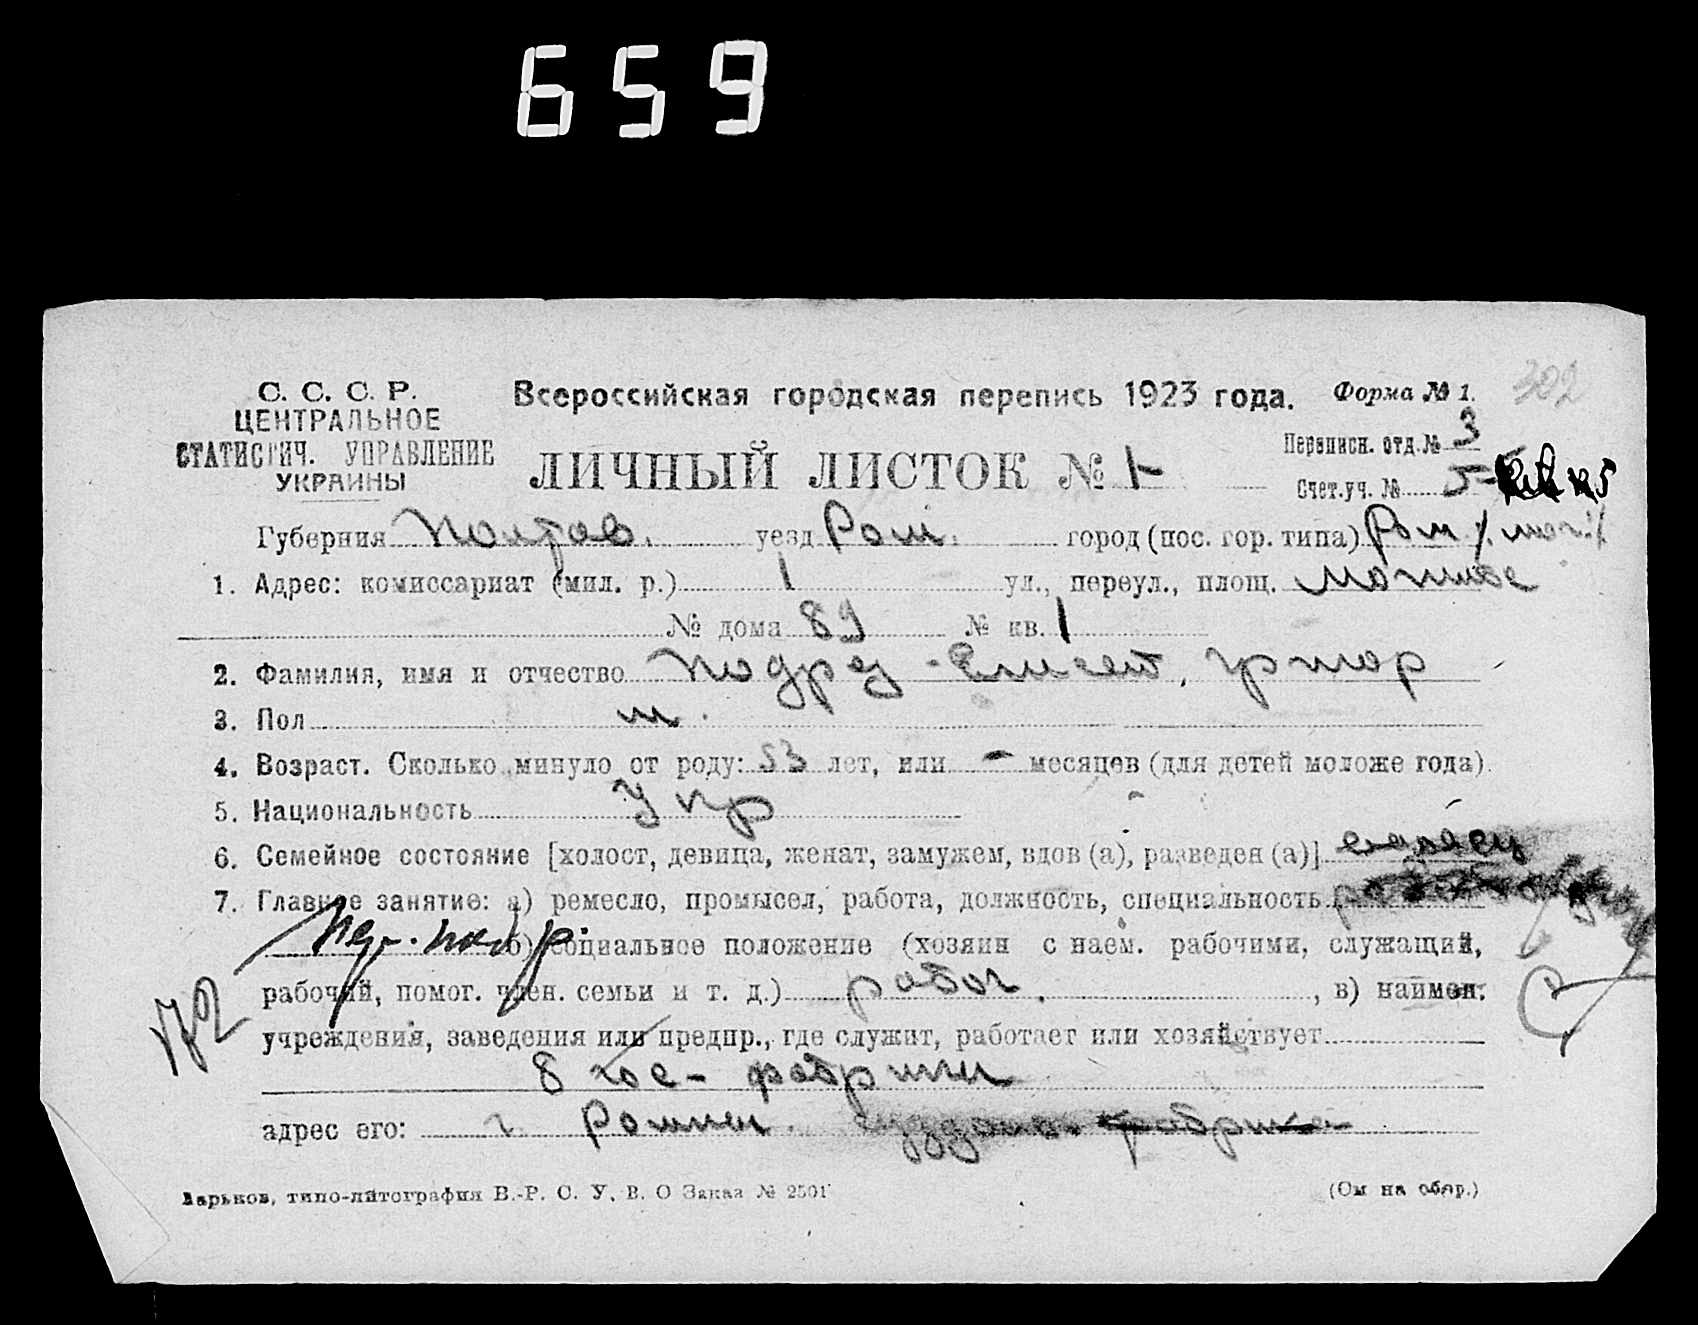 659
С. С. С. Р.
ЦЕНТРАЛЬНОЕ
СТАТИСТИЧ. УПРАВЛЕНИЕ
УКРАИНЫ
Всероссийская городская перепись 1923 года.
Форма № 1.
302
ЛИЧНЫЙ ЛИСТОК № 1
Переписн. отд. № 3
Счет. уч. № 5
Губерния Полтав. уезд Ром. город (пос. гор. типа) Ром
1. Адрес: комиссариат (мил. р.) 1 ул., переул., площ.
№ дома 89 № кв. 1
2. Фамилия, имя и отчество Елисей
3. Пол м.
4. Возраст. Сколько минуло от роду: 53 лет, или - месяцев (для детей моложе года).
5. Национальность Укр
6. Семейное состояние [холост, девица, женат, замужем, вдов (а), разведен (а)]
7. Главное занятие: а) ремесло, промысел, работа, должность, специальность
б) социальное положение (хозяин с наем. рабочими, служащий,
рабочий, помог. член. семьи и т. д.) рабоч. , в) наимен.
172
учреждения, заведения или предпр., где служит, работает или хозяйствует
фабрики
адрес его: г. Ромны. фабрика
Харьков, типо-литография В.-Р. С. У. В. О Заказ № 2501
(См на обор.)